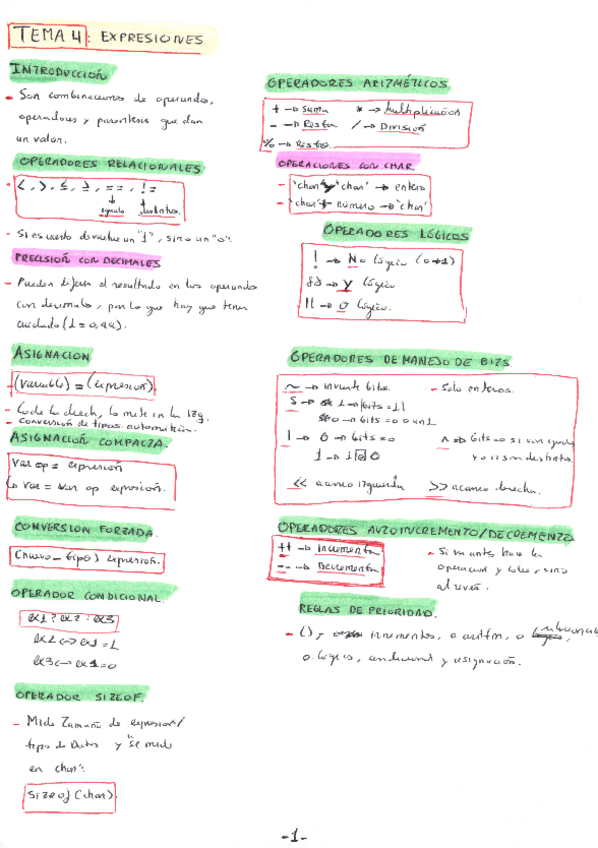 TEMA 4: EXPRESIONES
INTRODUCCIÓN
- Son combinaciones de operandos,
operadores y parentesis que dan
un valor.
OPERADORES RELACIONALES
<, >, ≤, ≥, ==, !=
igualo distintos
- Si es cierto devuelve un "1", sino un "0".
PRECISIÓN CON DECIMALES
- Pueden el resultado en los operandos
con decimales, por lo que hay que tener
cuidado
ASIGNACION
- (variable) = (expresion)
- la mete en la izq.
- conversión de tipos automática.
ASIGNACIÓN COMPACTA.
var op = expresión
↳ var = var op expresión.
CONVERSION FORZADA.
(nuevo-tipo) expresión.
OPERADOR CONDICIONAL.
ex1 ? ex2 : ex3
ex2 <-> ex1 = 1
ex3 <-> ex1 = 0
OPERADOR SIZEOF.
- Mide Tamaño de expresion/
tipos de Datos y "se mide
en char".
sizeof (char)
OPERADORES ARITMÉTICOS
+ -> suma * -> Multiplicación
- -> Resta / -> División
% -> Resto.
OPERACIONES CON CHAR.
- 'char' 'char' -> entero
- 'char' + número -> 'char'
OPERADORES LÓGICOS
! -> No lógico
&& -> y lógico
|| -> o lógico.
OPERADORES DE MANEJO DE BITS.
~ -> invierte bits. - Solo enteros.
1 -> bits = 1
0 -> bits = 0
| -> 0 -> bits = 0 ^ -> bits = 0 si son iguales
1 -> 1 0 y 1 si son distintos
<< avance izquierda >> avance derecha.
OPERADORES AUTOINCREMENTO/DECREMENTO.
++ -> incrementa
-- -> Decrementa
- Si va antes hace la
operacion y sino
al revés.
REGLAS DE PRIORIDAD.
- (), incrementos, o aritm, o relacionales
o lógicos, condicional y asignación.
-1-